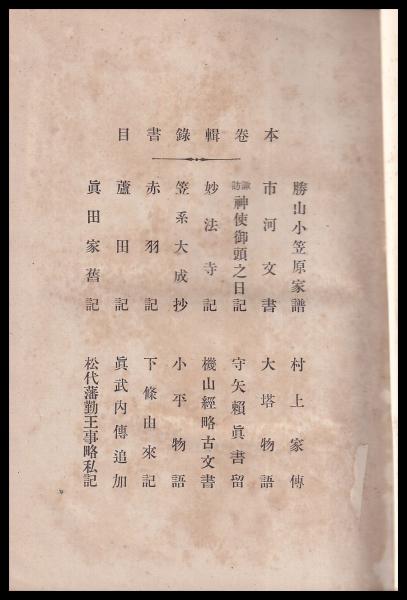 本卷輯錄書目
勝山小笠原家譜
市河文書
諏訪神使御頭之日記
妙法寺記
笠系大成抄
赤羽記
蘆田記
眞田家舊記
村上家傳
大塔物語
守矢賴眞書留
機山經略古文書
小平物語
下條由來記
眞武內傳追加
松代藩勤王事略私記